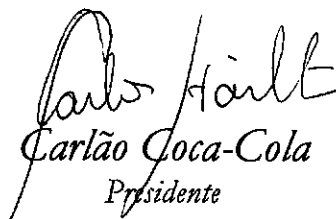 Carlão Coca-Cola
Presidente